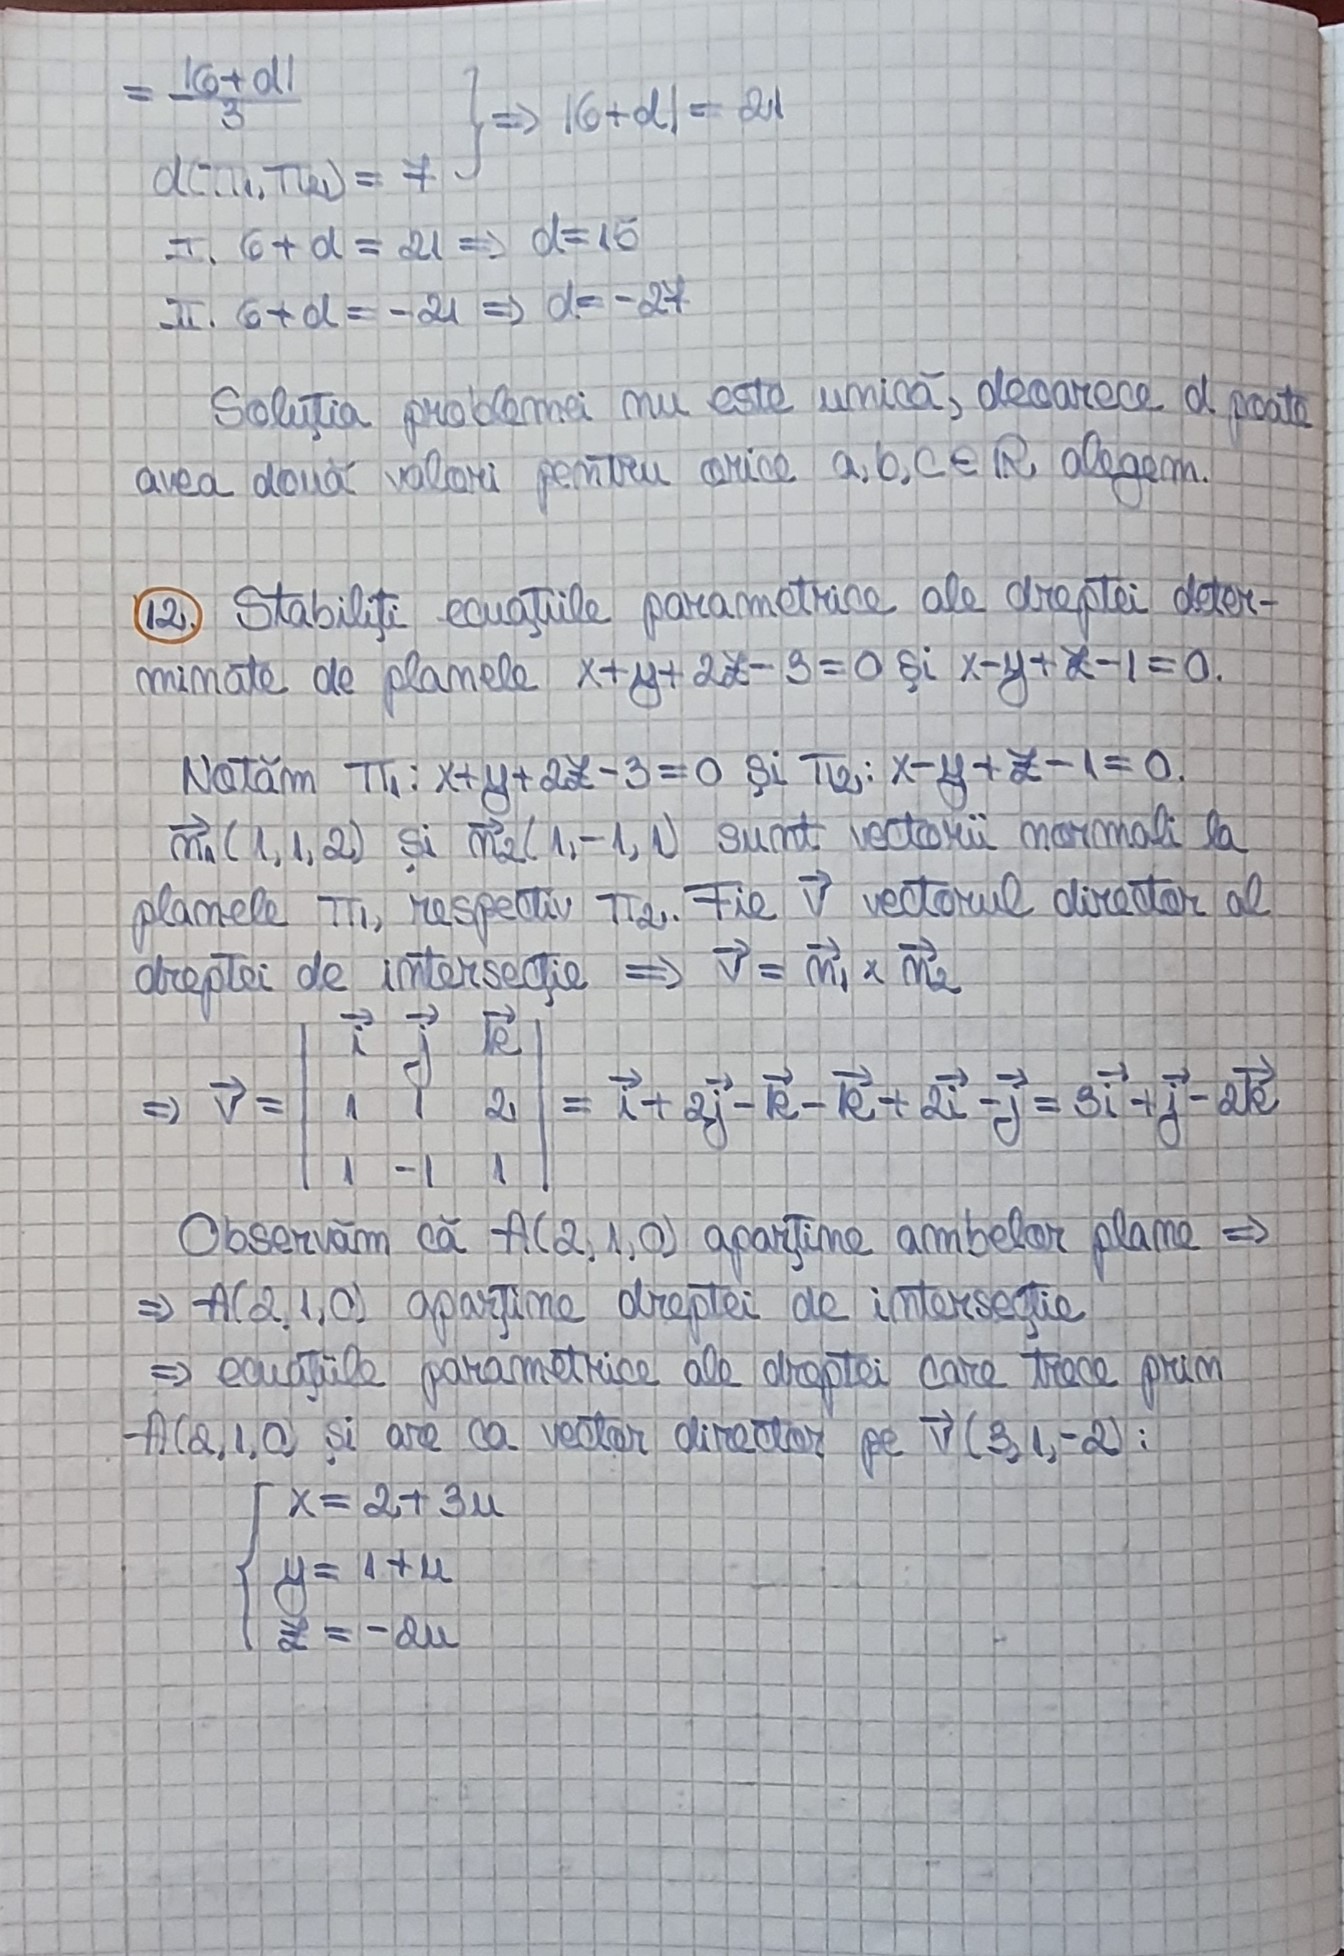 = |6+d|/3
} => |6+d| = 21
d(π₁, π₂) = 7
I. 6+d = 21 => d=15
II. 6+d = -21 => d= -27
Soluția problemei nu este unică, deoarece d poate
avea două valori pentru orice a,b,c ∈ ℝ alegem.
12. Stabiliți ecuațiile parametrice ale dreptei deter-
minate de planele x+y+2z-3=0 și x-y+z-1=0.
Notăm π₁: x+y+2z-3=0 și π₂: x-y+z-1=0.
n⃗₁(1,1,2) și n⃗₂(1,-1,1) sunt vectorii normali la
planele π₁, respectiv π₂. Fie v⃗ vectorul director al
dreptei de intersecție => v⃗ = n⃗₁ × n⃗₂
=> v⃗ = | i⃗ j⃗ k⃗ |
| 1 1 2 | = i⃗ + 2j⃗ - k⃗ - k⃗ + 2i⃗ - j⃗ = 3i⃗ + j⃗ - 2k⃗
| 1 -1 1 |
Observăm că A(2,1,0) aparține ambelor plane =>
=> A(2,1,0) aparține dreptei de intersecție
=> ecuațiile parametrice ale dreptei care trece prin
A(2,1,0) și are ca vector director pe v⃗(3,1,-2):
{ x = 2+3u
y = 1+u
z = -2u